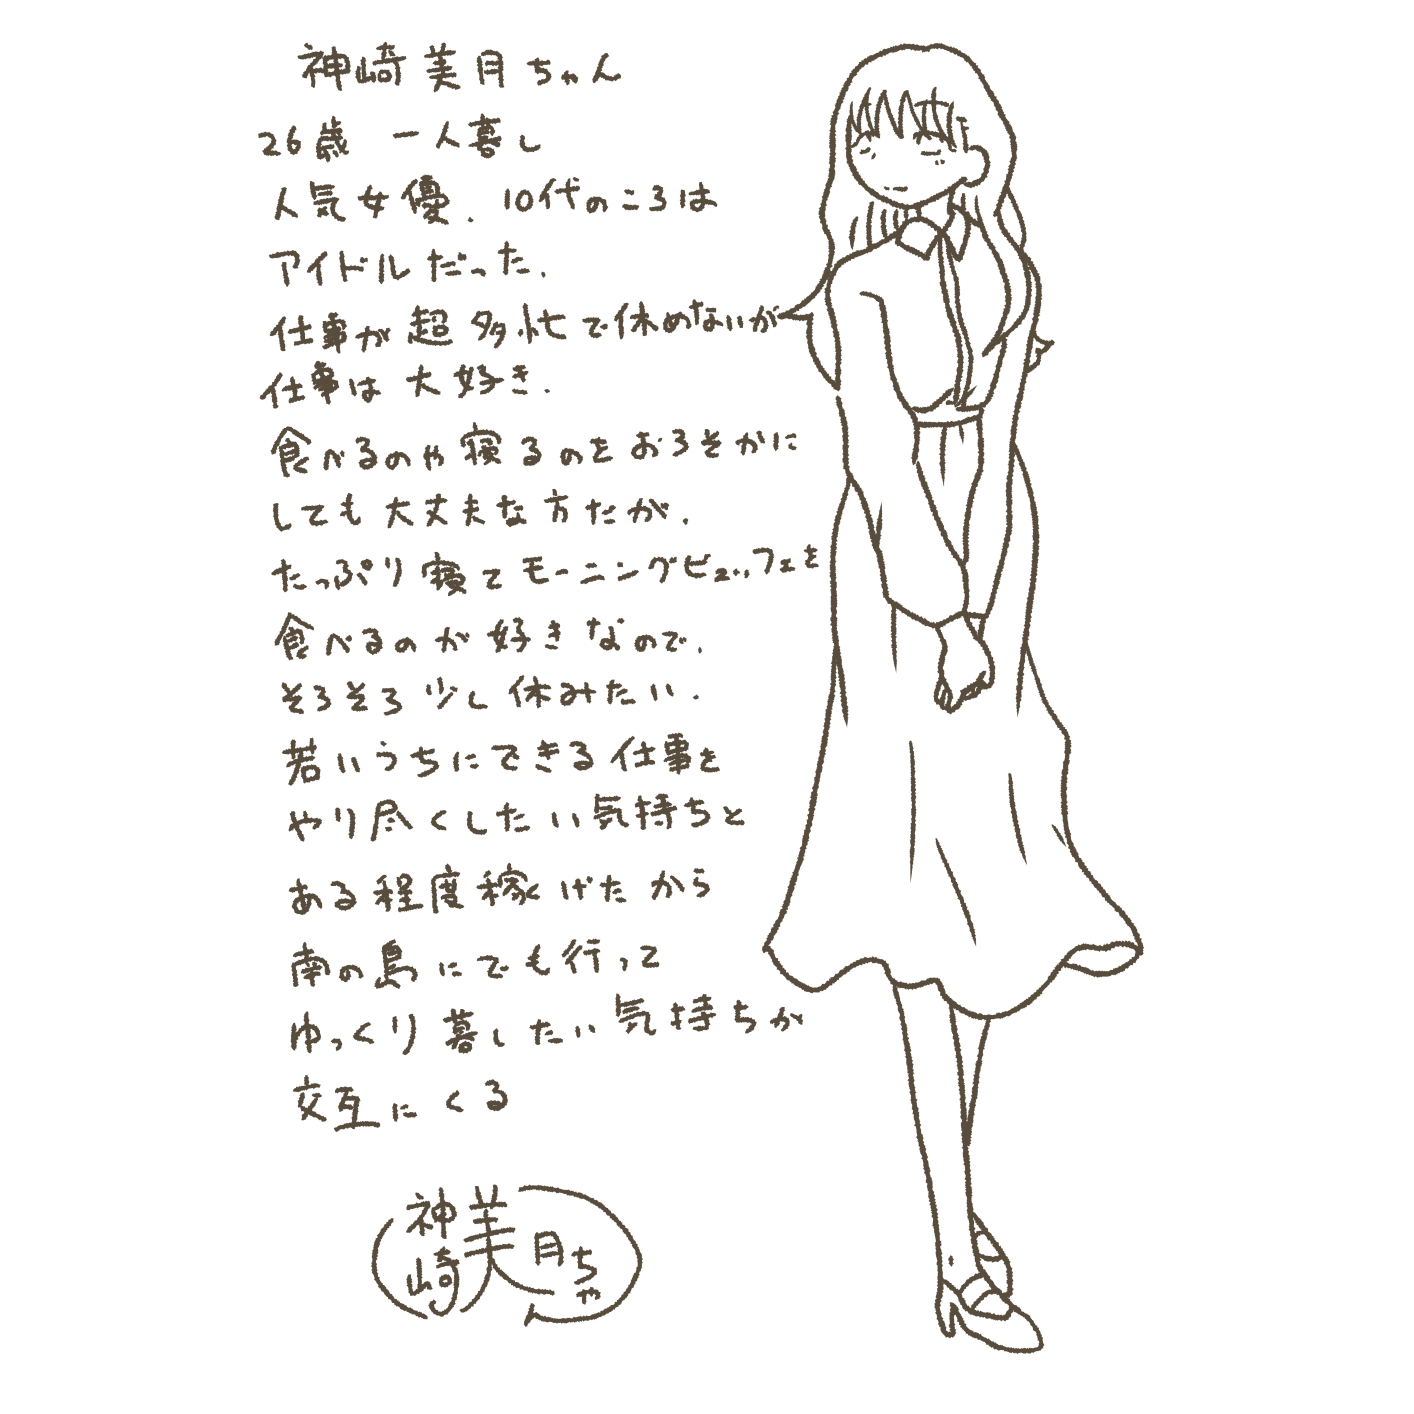 神崎美月ちゃん
26歳 一人暮し
人気女優. 10代のころは
アイドルだった.
仕事が超多忙で休めないが
仕事は大好き.
食べるのや寝るのをおろそかに
しても大丈夫な方だが.
たっぷり寝てモーニングビュッフェを
食べるのが好きなので.
そろそろ少し休みたい.
若いうちにできる仕事を
やり尽くしたい気持ちと
ある程度稼げたから
南の島にでも行って
ゆっくり暮したい気持ちが
交互にくる
神崎美月ちゃん